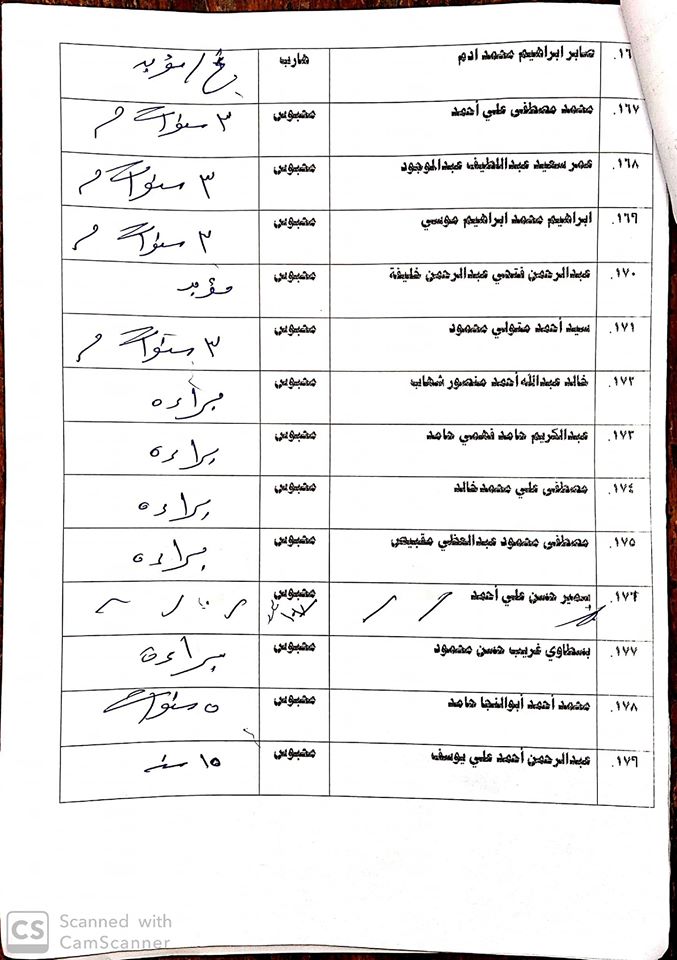 صابر ابراهيم محمد ادم هارب غ/مؤبد
١٦٧. محمد مصطفى علي أحمد محبوس ٣ سنوات م
١٦٨. عمر سعيد عبداللطيف عبدالموجود محبوس ٣ سنوات م
١٦٩. ابراهيم محمد ابراهيم موسي محبوس ٣ سنوات م
١٧٠. عبدالرحمن فتحي عبدالرحمن خليفة محبوس مؤبد
١٧١. سيد أحمد متولي محمود محبوس ٣ سنوات م
١٧٢. خالد عبدالله أحمد منصور شهاب محبوس براءه
١٧٣. عبدالكريم حامد فهمي حامد محبوس براءه
١٧٤. مصطفى علي محمد خالد محبوس براءه
١٧٥. مصطفى محمود عبدالعظي مقبيص محبوس براءه
١٧٦. سمير حسن علي أحمد محبوس
١٧٧. بسطاوي غريب حسن محمود محبوس براءة
١٧٨. محمد أحمد أبوالنجا حامد محبوس ٥ سنوات
١٧٩. عبدالرحمن أحمد علي يوسف محبوس ١٥ سنه
CS Scanned with
CamScanner